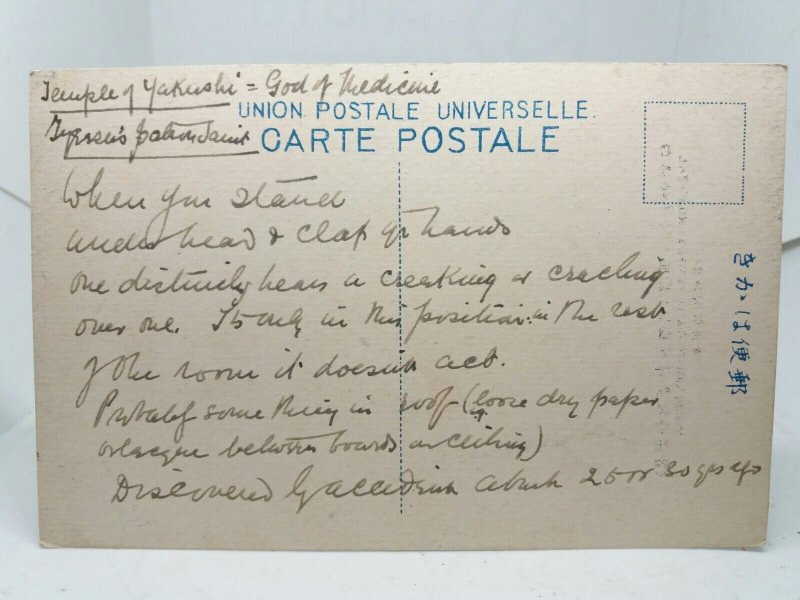 Temple of Yakushi = God of Medicine
Iyeyasu's patron Saint
UNION POSTALE UNIVERSELLE.
CARTE POSTALE
When you stand
under head & clap yr hands
one distinctly hears a creaking or crackling
over one. Its only in this position: in the rest
of the room it doesnt act.
Probably something in roof (loose dry paper
or lacquer between boards or ceiling)
Discovered by accident about 25 or 30 yrs ago
きかは便郵